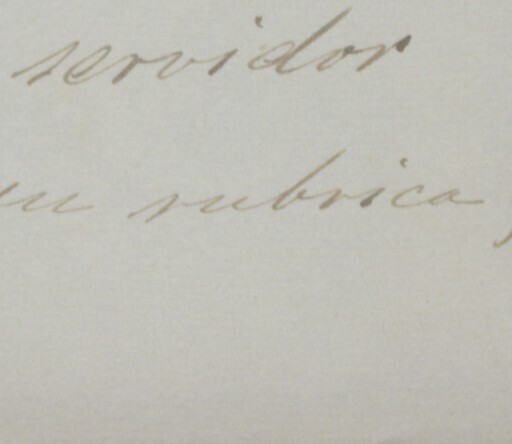 servidor
su rubrica